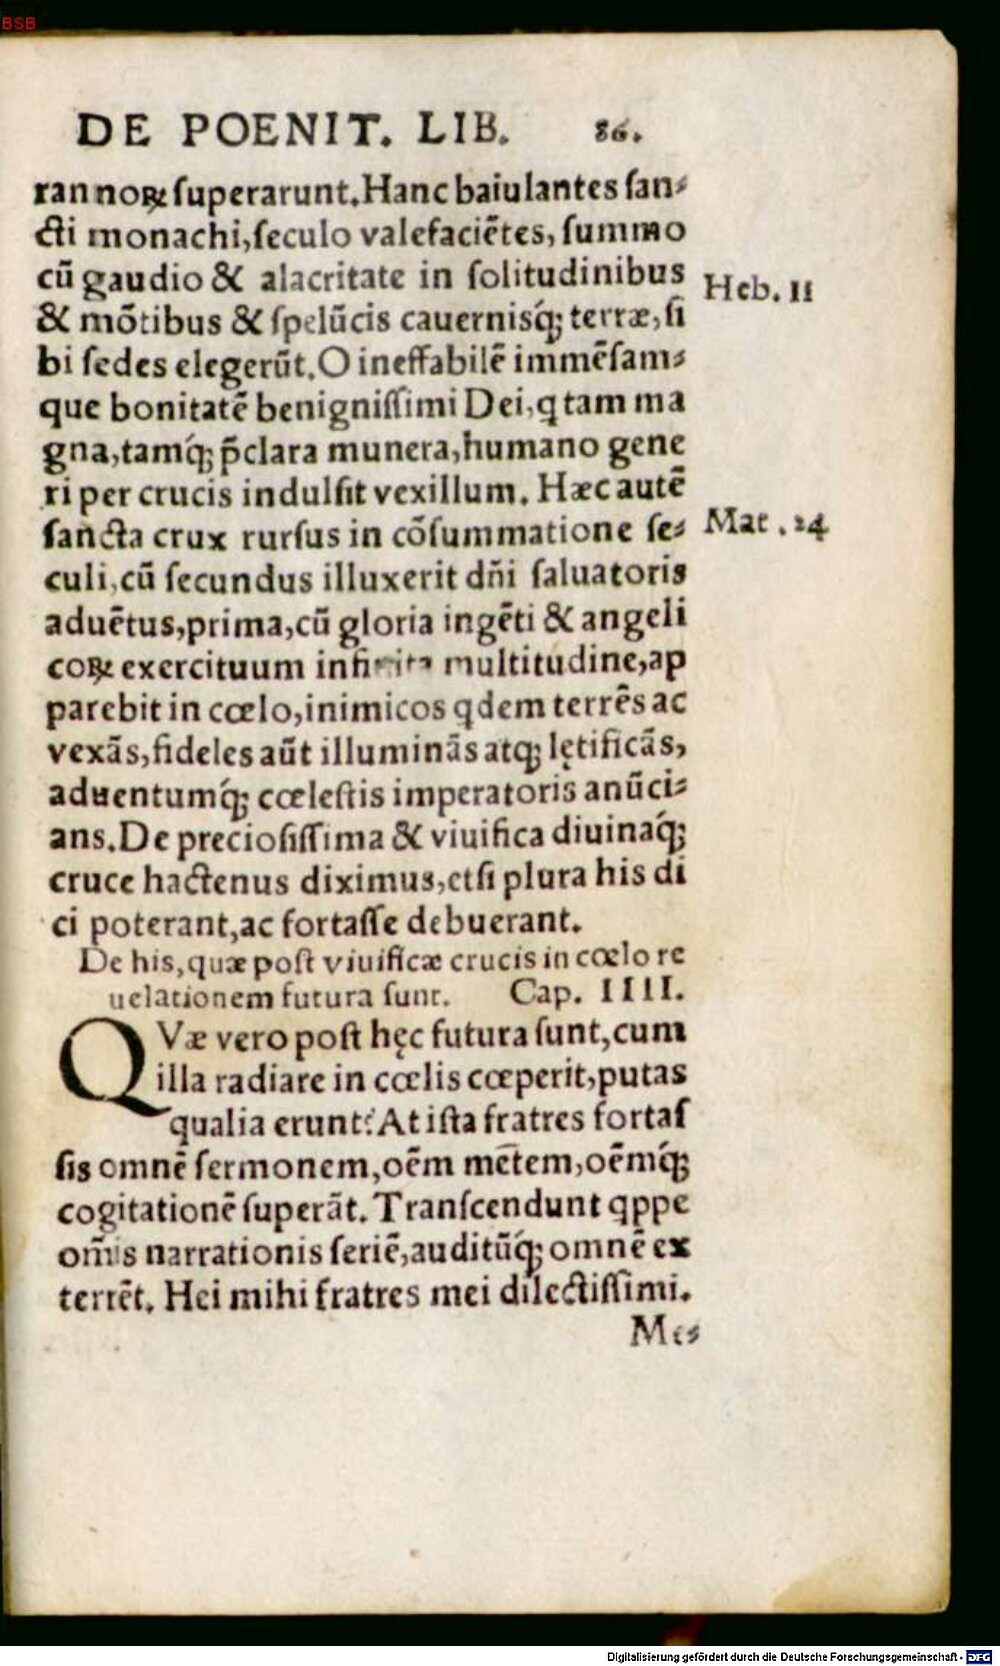 BSB
DE POENIT. LIB. 86.
ran noꝝ ſuperarunt. Hanc baiulantes ſan⸗
cti monachi, ſeculo valefaciẽtes, ſummo
cũ gaudio & alacritate in ſolitudinibus
Heb. 11
& mõtibus & ſpelũcis cauerniſq́; terræ, ſi
bi ſedes elegerũt. O ineffabilẽ immẽſam⸗
que bonitatẽ benigniſſimi Dei, q tam ma
gna, tamq́; p̃clara munera, humano gene
ri per crucis indulſit vexillum. Hæc autẽ
ſancta crux rurſus in cõſummatione ſe⸗
Mat. 24
culi, cũ ſecundus illuxerit dñi ſaluatoris
aduẽtus, prima, cũ gloria ingẽti & angeli
coꝝ exercituum infinita multitudine, ap
parebit in cœlo, inimicos qdem terrẽs ac
vexãs, fideles aũt illuminãs atq; lętificãs,
aduentumq́; cœleſtis imperatoris anũci⸗
ans. De precioſiſſima & viuifica diuinaq́;
cruce hactenus diximus, etſi plura his di
ci poterant, ac fortaſſe debuerant.
De his, quæ poſt viuificæ crucis in cœlo re
uelationem futura ſunt. Cap. IIII.
QVæ vero poſt hęc futura ſunt, cum
illa radiare in cœlis cœperit, putas
qualia erunt? At iſta fratres fortaſ
ſis omnẽ ſermonem, oẽm mẽtem, oẽmq́;
cogitationẽ ſuperãt. Tranſcendunt qppe
om̃is narrationis ſeriẽ, auditũq́; omnẽ ex
terrẽt. Hei mihi fratres mei dilectiſſimi.
Me⸗
Digitalisierung gefördert durch die Deutsche Forschungsgemeinschaft - DFG